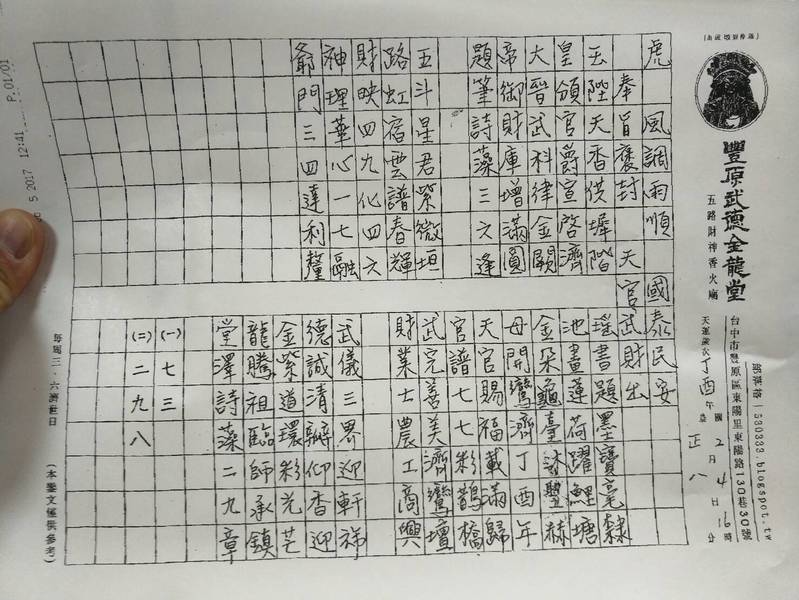 (南巡御繪神像)
豐原武德金龍堂
五路財神香火廟
部落格:530333.blogspot.tw
台中市豐原區東陽里東陽路130巷30號
天運歲次丁酉年 國 2月4日16時
農 正 八 分
虎 風調雨順 國泰民安
奉旨褒封 天官武財出
玉陛天香供墀階
皇頒官爵宣啓濟
大晉武科律金闕
帝御財庫增滿圓
題筆詩藻三六逢
五斗星君紫微垣
路虹宿雲譜春輝
財映四九化四六
神理華心一七融
爺門三四達利釐
瑤書題墨寶毫隸
池畫蓮荷躍鯉塘
金朵龜臺沐豐赫
母開鸞濟丁酉年
天官賜福載滿歸
官譜七七彩鵲橋
武完善美濟鸞壇
財業士農工商興
武儀三界迎軒祥
德誠清 仰香迎
金紫道環彩光芒
龍騰祖臨師承鎮
堂澤詩藻二九章
(一)七三
(二)二九八
每週三.六濟世日 (本鸞文僅供參考)
5 2017 12:41 P.01/01